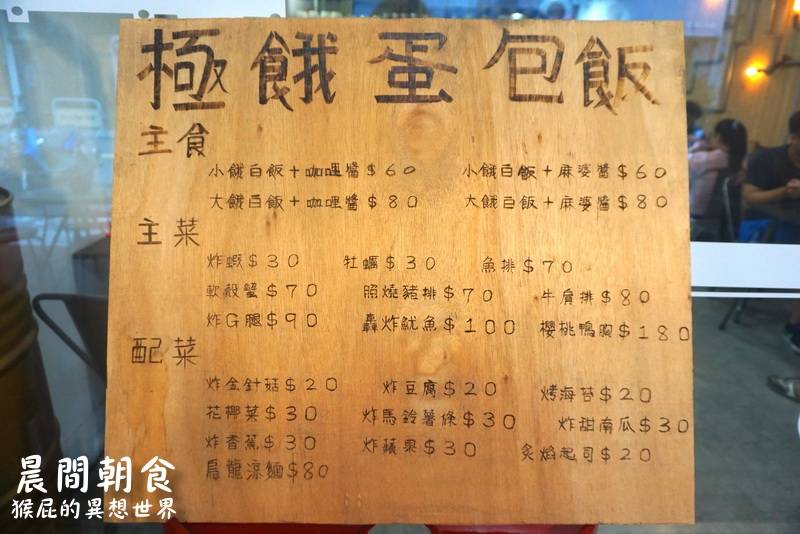 極餓蛋包飯
主食
小餓白飯+咖哩醬$60 小餓白飯+麻婆醬$60
大餓白飯+咖哩醬$80 大餓白飯+麻婆醬$80
主菜
炸蝦$30 牡蠣$30 魚排$70
軟殼蟹$70 照燒豬排$70 牛肩排$80
炸G腿$90 轟炸魷魚$100 櫻桃鴨胸$180
配菜
炸金針菇$20 炸豆腐$20 烤海苔$20
花椰菜$30 炸馬鈴薯條$30 炸甜南瓜$30
炸香蕉$30 炸蘋果$30 炙焰起司$20
烏龍涼麵$80
晨間朝食
猴屁的異想世界